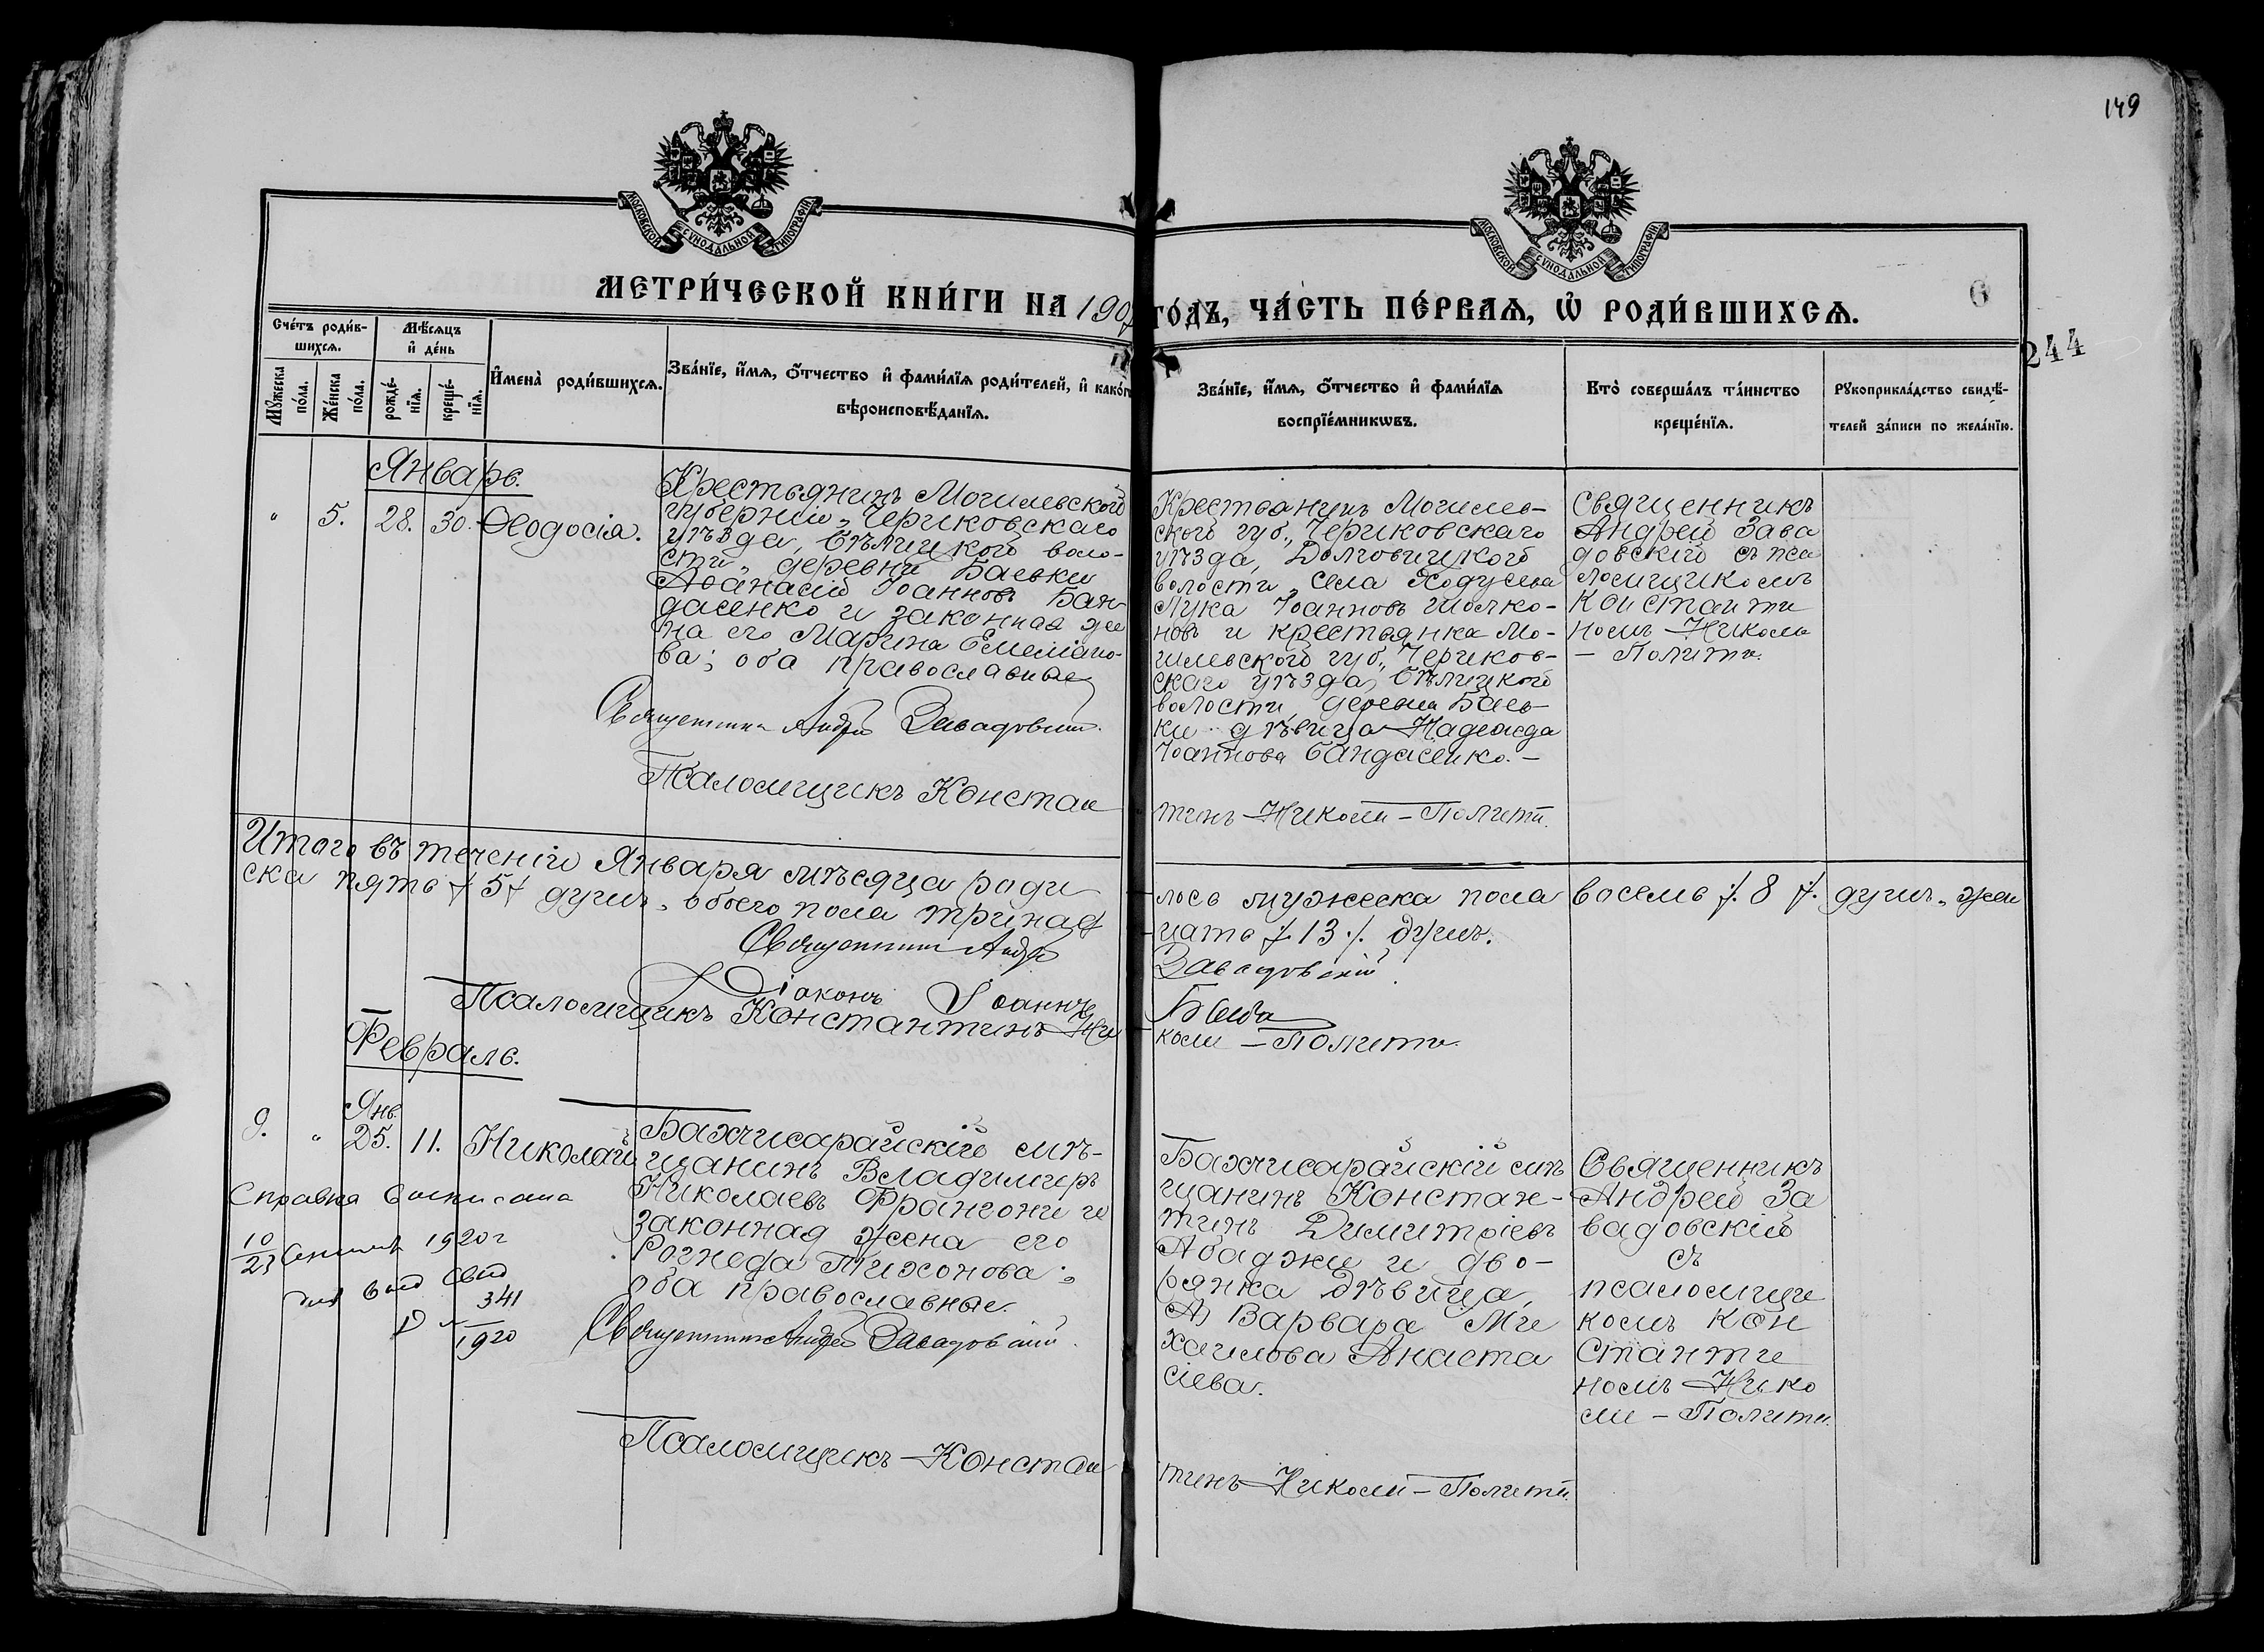 149
МОСКОВСКОЙ СѴНОДАЛЬНОЙ ТИПОГРАФІИ
МОСКОВСКОЙ СѴНОДАЛЬНОЙ ТИПОГРАФІИ
МЕТРИ́ЧЕСКОЙ КНИ́ГИ НА 190
ГО́ДЪ, ЧА́СТЬ ПЕ́РВАѦ, Ѡ҆ РОДИ́ВШИХСѦ.
6
244
Сче́тъ роди́в-
шихсѧ.
Мѣ́сѧцъ
и҆ де́нь
Мꙋ́жеска
по́ла.
Же́нска
по́ла.
рожде́-
нїѧ.
креще́-
нїѧ.
И҆мена̀ роди́вшихсѧ.
Зва́нїе, и҆́мѧ, ѻ҆́тчество и҆ фами́лїѧ роди́телей, и҆ како́гѡ
вѣроисповѣ́данїѧ.
Зва́нїе, и҆́мѧ, ѻ҆́тчество и҆ фами́лїѧ
воспрїе́мникѡвъ.
Кто̀ соверша́лъ та́инство
креще́нїѧ.
Рꙋкоприкла́дство свидѣ́-
телей за́писи по жела́нїю.
Январь.
" 5. 28. 30. Ѳеодосія.
Крестьянинъ Могилевской
губерніи, Чериковскаго
уѣзда, Бѣлицкой воло-
сти, деревни Баевки
Аѳанасій Іоанновъ Бан
дасенко и законная же
на его Марина Емеліано-
ва; оба православные
Священникъ Андрей Завадовскій.
Псаломщикъ Констан
Крестьянинъ Могилев-
ской губ., Чериковскаго
уѣзда, Долговицкой
волости, села Ходусева
Лука Іоанновъ
новъ и крестьянка Мо-
гилевской губ., Чериков-
скаго уѣзда, Бѣлицкой
волости, деревни Баев-
ки дѣвица Надежда
Іоаннова Бандасенко.-
тинъ Николи-Полити.
Священникъ
Андрей Зава
довскій съ пса
ломщикомъ
Константи
номъ Николи
- Полити.
Итого въ теченіи Января мѣсяца роди
лось мужеска пола восемь /. 8 /. душъ, жен
ска пять / 5 / душъ, обоего пола тринад
цать /. 13 ./. душъ.
Священникъ Андрей
Завадовскій.
Діаконъ Іоаннъ
Псаломщикъ Константинъ Ни
коли - Полити.
Февраль.
Янв.
9. " 25. 11. Николай
Бахчисарайскій мѣ-
щанинъ Владимиръ
Николаевъ Франгони и
законная жена его
Рогнеда Тихонова;
оба православные.
Священникъ Андрей Завадовскій.
Псаломщикъ Констан
Справка выписана
10
23
1920 г
341
1920
Бахчисарайскій мѣ
щанинъ Констан-
тинъ Димитріевъ
Абаджи и дво-
рянка дѣвица,
Варвара Ми
хаилова Анаста
сіева.
тинъ Николи - Полити.
Священникъ
Андрей За
вадовскій
съ
псаломщи
комъ Кон
станти
номъ Нико
ли - Полити.